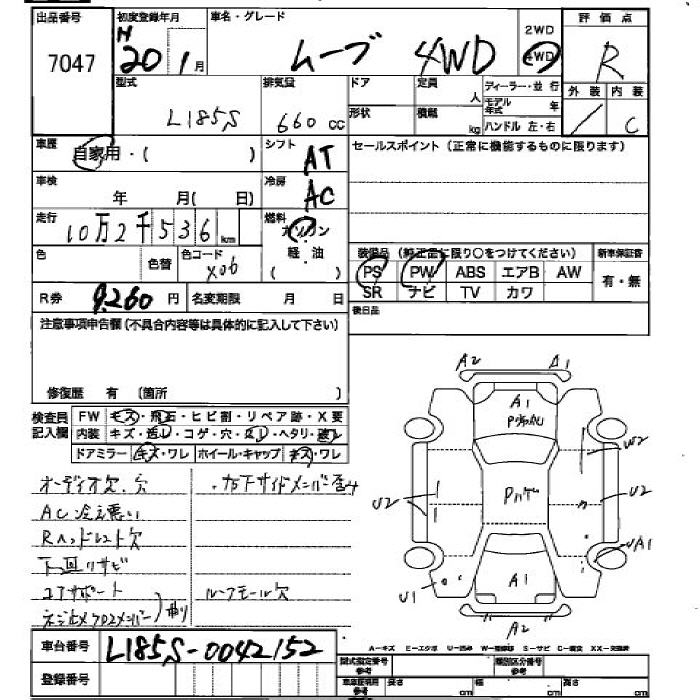 出品番号
7047
初度登録年月
H 20 年 1月
車名・グレード
ムーブ 4WD
2WD
4WD
評価点
R
外装 内装
/ C
型式
L185S
排気量
660 cc
ドア
形状
定員
人
積載
kg
ディーラー・並行
モデル年式 年
ハンドル 左・右
車歴
自家用・( )
シフト
AT
セールスポイント(正常に機能するものに限ります)
車検
年 月( 日)
冷房
AC
走行
10万2千536 km
燃料
ガソリン
軽・油
( )
色
色替
色コード
X06
装備品(純正品に限り○をつけてください)
PS PW ABS エアB AW
SR ナビ TV カワ
新車保証書
有・無
R券 9,260 円
名変期限 月 日
後日品
注意事項申告欄(不具合内容等は具体的に記入して下さい)
修復歴 有 (箇所 )
検査員記入欄
FW キズ・飛石・ヒビ割・リペア跡・X要
内装 キズ・汚レ・コゲ・穴・スレ・ヘタリ・破レ
ドアミラー キズ・ワレ ホイール・キャップ キズ・ワレ
オーディオ欠.穴
AC冷え悪い
Rヘッドレスト欠
下回リサビ
コアサポート
曲り
・右下サイドメンバー歪み
ルーフモール欠
A2 A1
A1
U2
U2
W2
U2
UA1
U1
A1
A2
車台番号
L185S-0042152
登録番号
A-キズ E-エクボ U-凹み W-補修跡 S-サビ C-腐食 XX-交換済
型式指定番号 参考
類別区分番号 参考
車庫証明用 参考
長さ cm
幅 cm
高さ cm